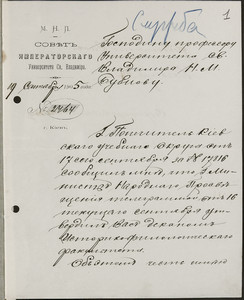 Служба
1
М. Н. П.
СОВѢТЪ
ИМПЕРАТОРСКАГО
Университета Св. Владиміра.
19 Сентября 1905 года
№ 2464
г. Кіевъ.
Господину профессору
Университета Св.
Владиміра Н. М.
Бубнову.
Г. Попечитель Кіев
скаго учебнаго округа отъ
17 сего сентября за №
сообщилъ мнѣ, что г. Ми
нистръ Народнаго Просвѣ
щенія отъ 16
текущаго сентября у
твердилъ Васъ деканомъ
Историко-филологическаго
факультета.
честь имѣю